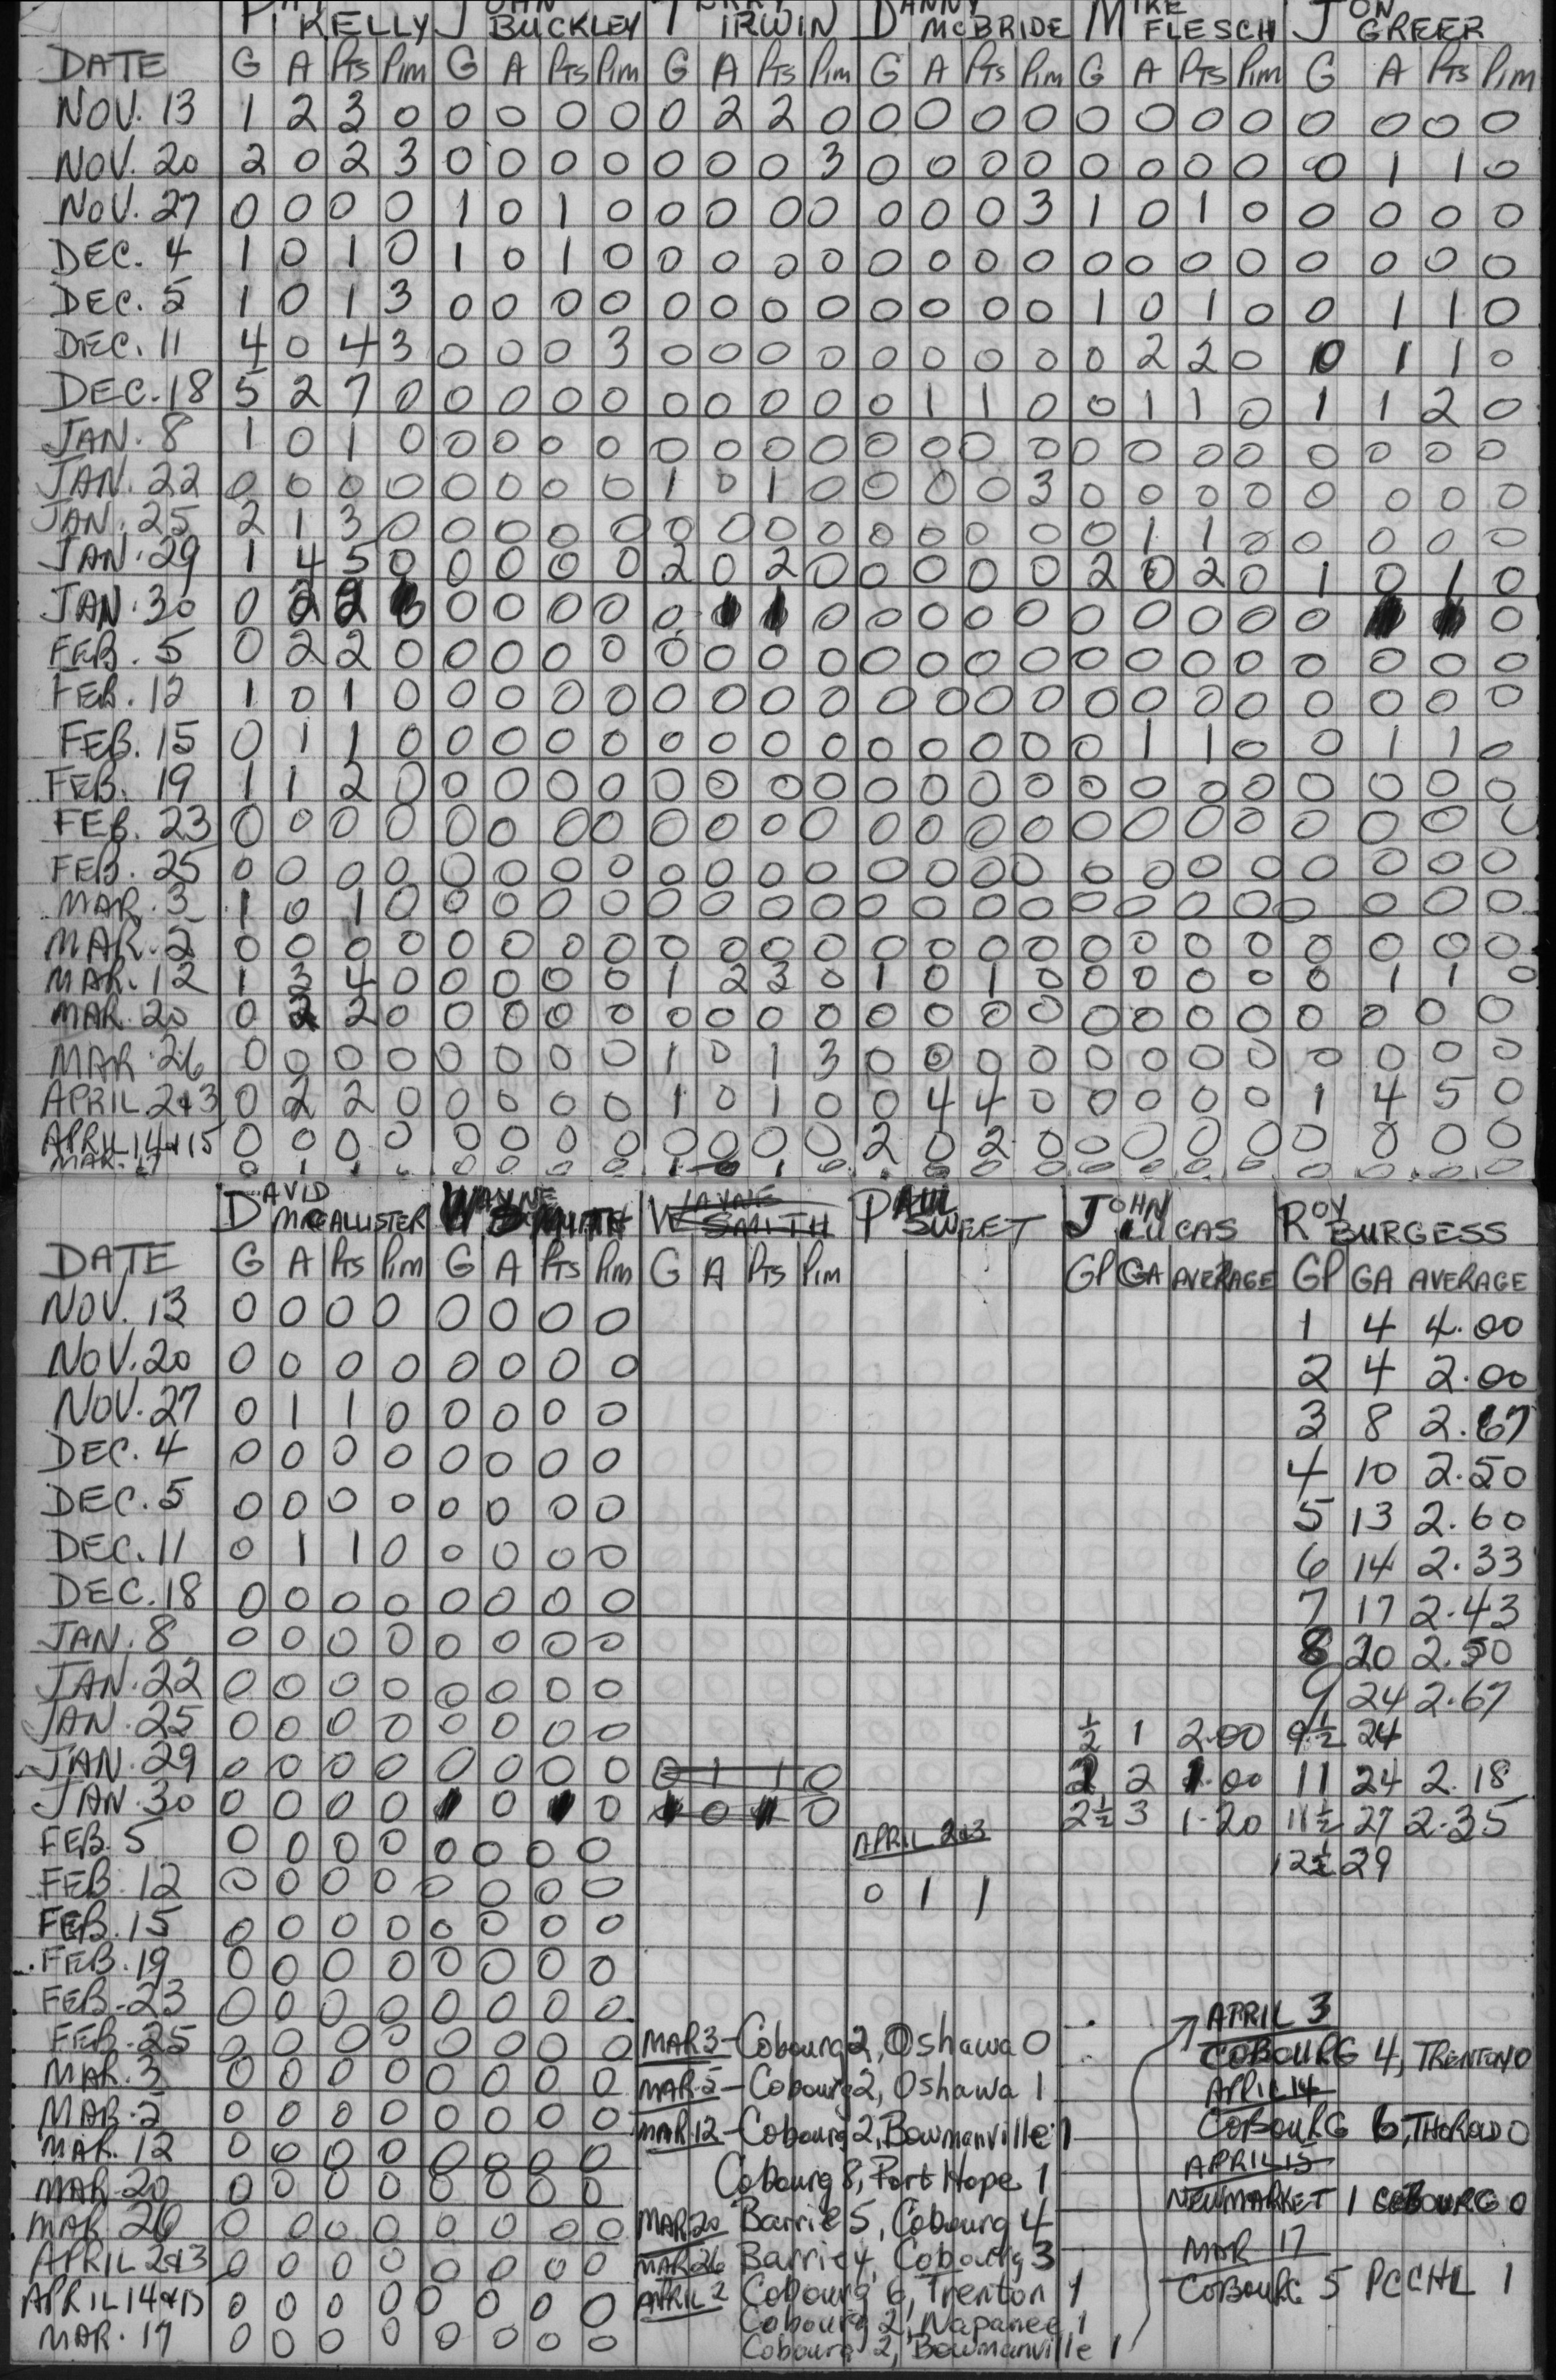 PAT KELLY JOHN BUCKLEY TERRY IRWIN DANNY McBRIDE MIKE FLESCH JON GREER
DATE G A PTS Pim G A PTS Pim G A PTS Pim G A PTS Pim G A PTS Pim G A PTS Pim
NOV. 13 1 2 3 0 0 0 0 0 0 2 2 0 0 0 0 0 0 0 0 0 0 0 0 0
NOV. 20 2 0 2 3 0 0 0 0 0 0 0 3 0 0 0 0 0 0 0 0 0 1 1 0
NOV. 27 0 0 0 0 1 0 1 0 0 0 0 0 0 0 0 3 1 0 1 0 0 0 0 0
DEC. 4 1 0 1 0 1 0 1 0 0 0 0 0 0 0 0 0 0 0 0 0 0 0 0 0
DEC. 5 1 0 1 3 0 0 0 0 0 0 0 0 0 0 0 0 1 0 1 0 0 1 1 0
DEC. 11 4 0 4 3 0 0 0 3 0 0 0 0 0 0 0 0 0 2 2 0 0 1 1 0
DEC. 18 5 2 7 0 0 0 0 0 0 0 0 0 0 1 1 0 0 1 1 0 1 1 2 0
JAN. 8 1 0 1 0 0 0 0 0 0 0 0 0 0 0 0 0 0 0 0 0 0 0 0 0
JAN. 22 0 0 0 0 0 0 0 0 1 0 1 0 0 0 0 3 0 0 0 0 0 0 0 0
JAN. 25 2 1 3 0 0 0 0 0 0 0 0 0 0 0 0 0 0 1 1 0 0 0 0 0
JAN. 29 1 4 5 0 0 0 0 0 2 0 2 0 0 0 0 0 2 0 2 0 1 0 1 0
JAN. 30 0 2 2 0 0 0 0 0 1 1 0 0 0 0 0 0 0 0 0 0 0
FEB. 5 0 2 2 0 0 0 0 0 0 0 0 0 0 0 0 0 0 0 0 0 0 0 0 0
FEB. 12 1 0 1 0 0 0 0 0 0 0 0 0 0 0 0 0 0 0 0 0 0 0 0 0
FEB. 15 0 1 1 0 0 0 0 0 0 0 0 0 0 0 0 0 0 1 1 0 0 1 1 0
FEB. 19 1 1 2 0 0 0 0 0 0 0 0 0 0 0 0 0 0 0 0 0 0 0 0 0
FEB. 23 0 0 0 0 0 0 0 0 0 0 0 0 0 0 0 0 0 0 0 0 0 0 0 0
FEB. 25 0 0 0 0 0 0 0 0 0 0 0 0 0 0 0 0 0 0 0 0 0 0 0 0
MAR. 3 1 0 1 0 0 0 0 0 0 0 0 0 0 0 0 0 0 0 0 0 0 0 0 0
MAR. 5 0 0 0 0 0 0 0 0 0 0 0 0 0 0 0 0 0 0 0 0 0 0 0 0
MAR. 12 1 3 4 0 0 0 0 0 1 2 3 0 1 0 1 0 0 0 0 0 0 1 1 0
MAR. 20 0 2 2 0 0 0 0 0 0 0 0 0 0 0 0 0 0 0 0 0 0 0 0 0
MAR. 26 0 0 0 0 0 0 0 0 1 0 1 3 0 0 0 0 0 0 0 0 0 0 0 0
APRIL 2+3 0 2 2 0 0 0 0 0 1 0 1 0 0 4 4 0 0 0 0 0 1 4 5 0
APRIL 14+15 0 0 0 0 0 0 0 0 0 0 0 0 2 0 2 0 0 0 0 0 0 0 0 0
MAR. 17 0 1 1 0 0 0 0 0 1 0 1 0 0 0 0 0 0 0 0 0 0 0 0 0
DAVID McCALLISTER WAYNE SMITH WAYNE SMITH PAUL SWEET JOHN LUCAS ROY BURGESS
DATE G A PTS Pim G A PTS Pim G A PTS Pim GP GA AVERAGE GP GA AVERAGE
NOV. 13 0 0 0 0 0 0 0 0 1 4 4.00
NOV. 20 0 0 0 0 0 0 0 0 2 4 2.00
NOV. 27 0 1 1 0 0 0 0 0 3 8 2.67
DEC. 4 0 0 0 0 0 0 0 0 4 10 2.50
DEC. 5 0 0 0 0 0 0 0 0 5 13 2.60
DEC. 11 0 1 1 0 0 0 0 0 6 14 2.33
DEC. 18 0 0 0 0 0 0 0 0 7 17 2.43
JAN. 8 0 0 0 0 0 0 0 0 8 20 2.50
JAN. 22 0 0 0 0 0 0 0 0 9 24 2.67
JAN. 25 0 0 0 0 0 0 0 0 ½ 1 2.00 9½ 24
JAN. 29 0 0 0 0 0 0 0 0 0 1 1 0 2 2 1.00 11 24 2.18
JAN. 30 0 0 0 0 0 0 0 0 2½ 3 1.20 11½ 27 2.35
FEB. 5 0 0 0 0 0 0 0 0 APRIL 2+3 12½ 29
FEB. 12 0 0 0 0 0 0 0 0 0 1 1
FEB. 15 0 0 0 0 0 0 0 0
FEB. 19 0 0 0 0 0 0 0 0
FEB. 23 0 0 0 0 0 0 0 0 APRIL 3
FEB. 25 0 0 0 0 0 0 0 0 MAR 3 - Cobourg 2, Oshawa 0 COBOURG 4, TRENTON 0
MAR. 3 0 0 0 0 0 0 0 0 MAR 5 - Cobourg 2, Oshawa 1 APRIL 14
MAR. 5 0 0 0 0 0 0 0 0 MAR 12 - Cobourg 2, Bowmanville 1 COBOURG 6, THOROLD 0
MAR. 12 0 0 0 0 0 0 0 0 Cobourg 8, Port Hope 1 APRIL 15
MAR. 20 0 0 0 0 0 0 0 0 NEWMARKET 1 COBOURG 0
MAR 26 0 0 0 0 0 0 0 0 MAR 20 Barrie 5, Cobourg 4
APRIL 2+3 0 0 0 0 0 0 0 0 MAR 26 Barrie 4, Cobourg 3 MAR 17
APRIL 14+15 0 0 0 0 0 0 0 0 APRIL 2 Cobourg 6, Trenton 1 COBOURG 5 PCCHL 1
Cobourg 2, Napanee 1
MAR. 17 0 0 0 0 0 0 0 0 Cobourg 2, Bowmanville 1